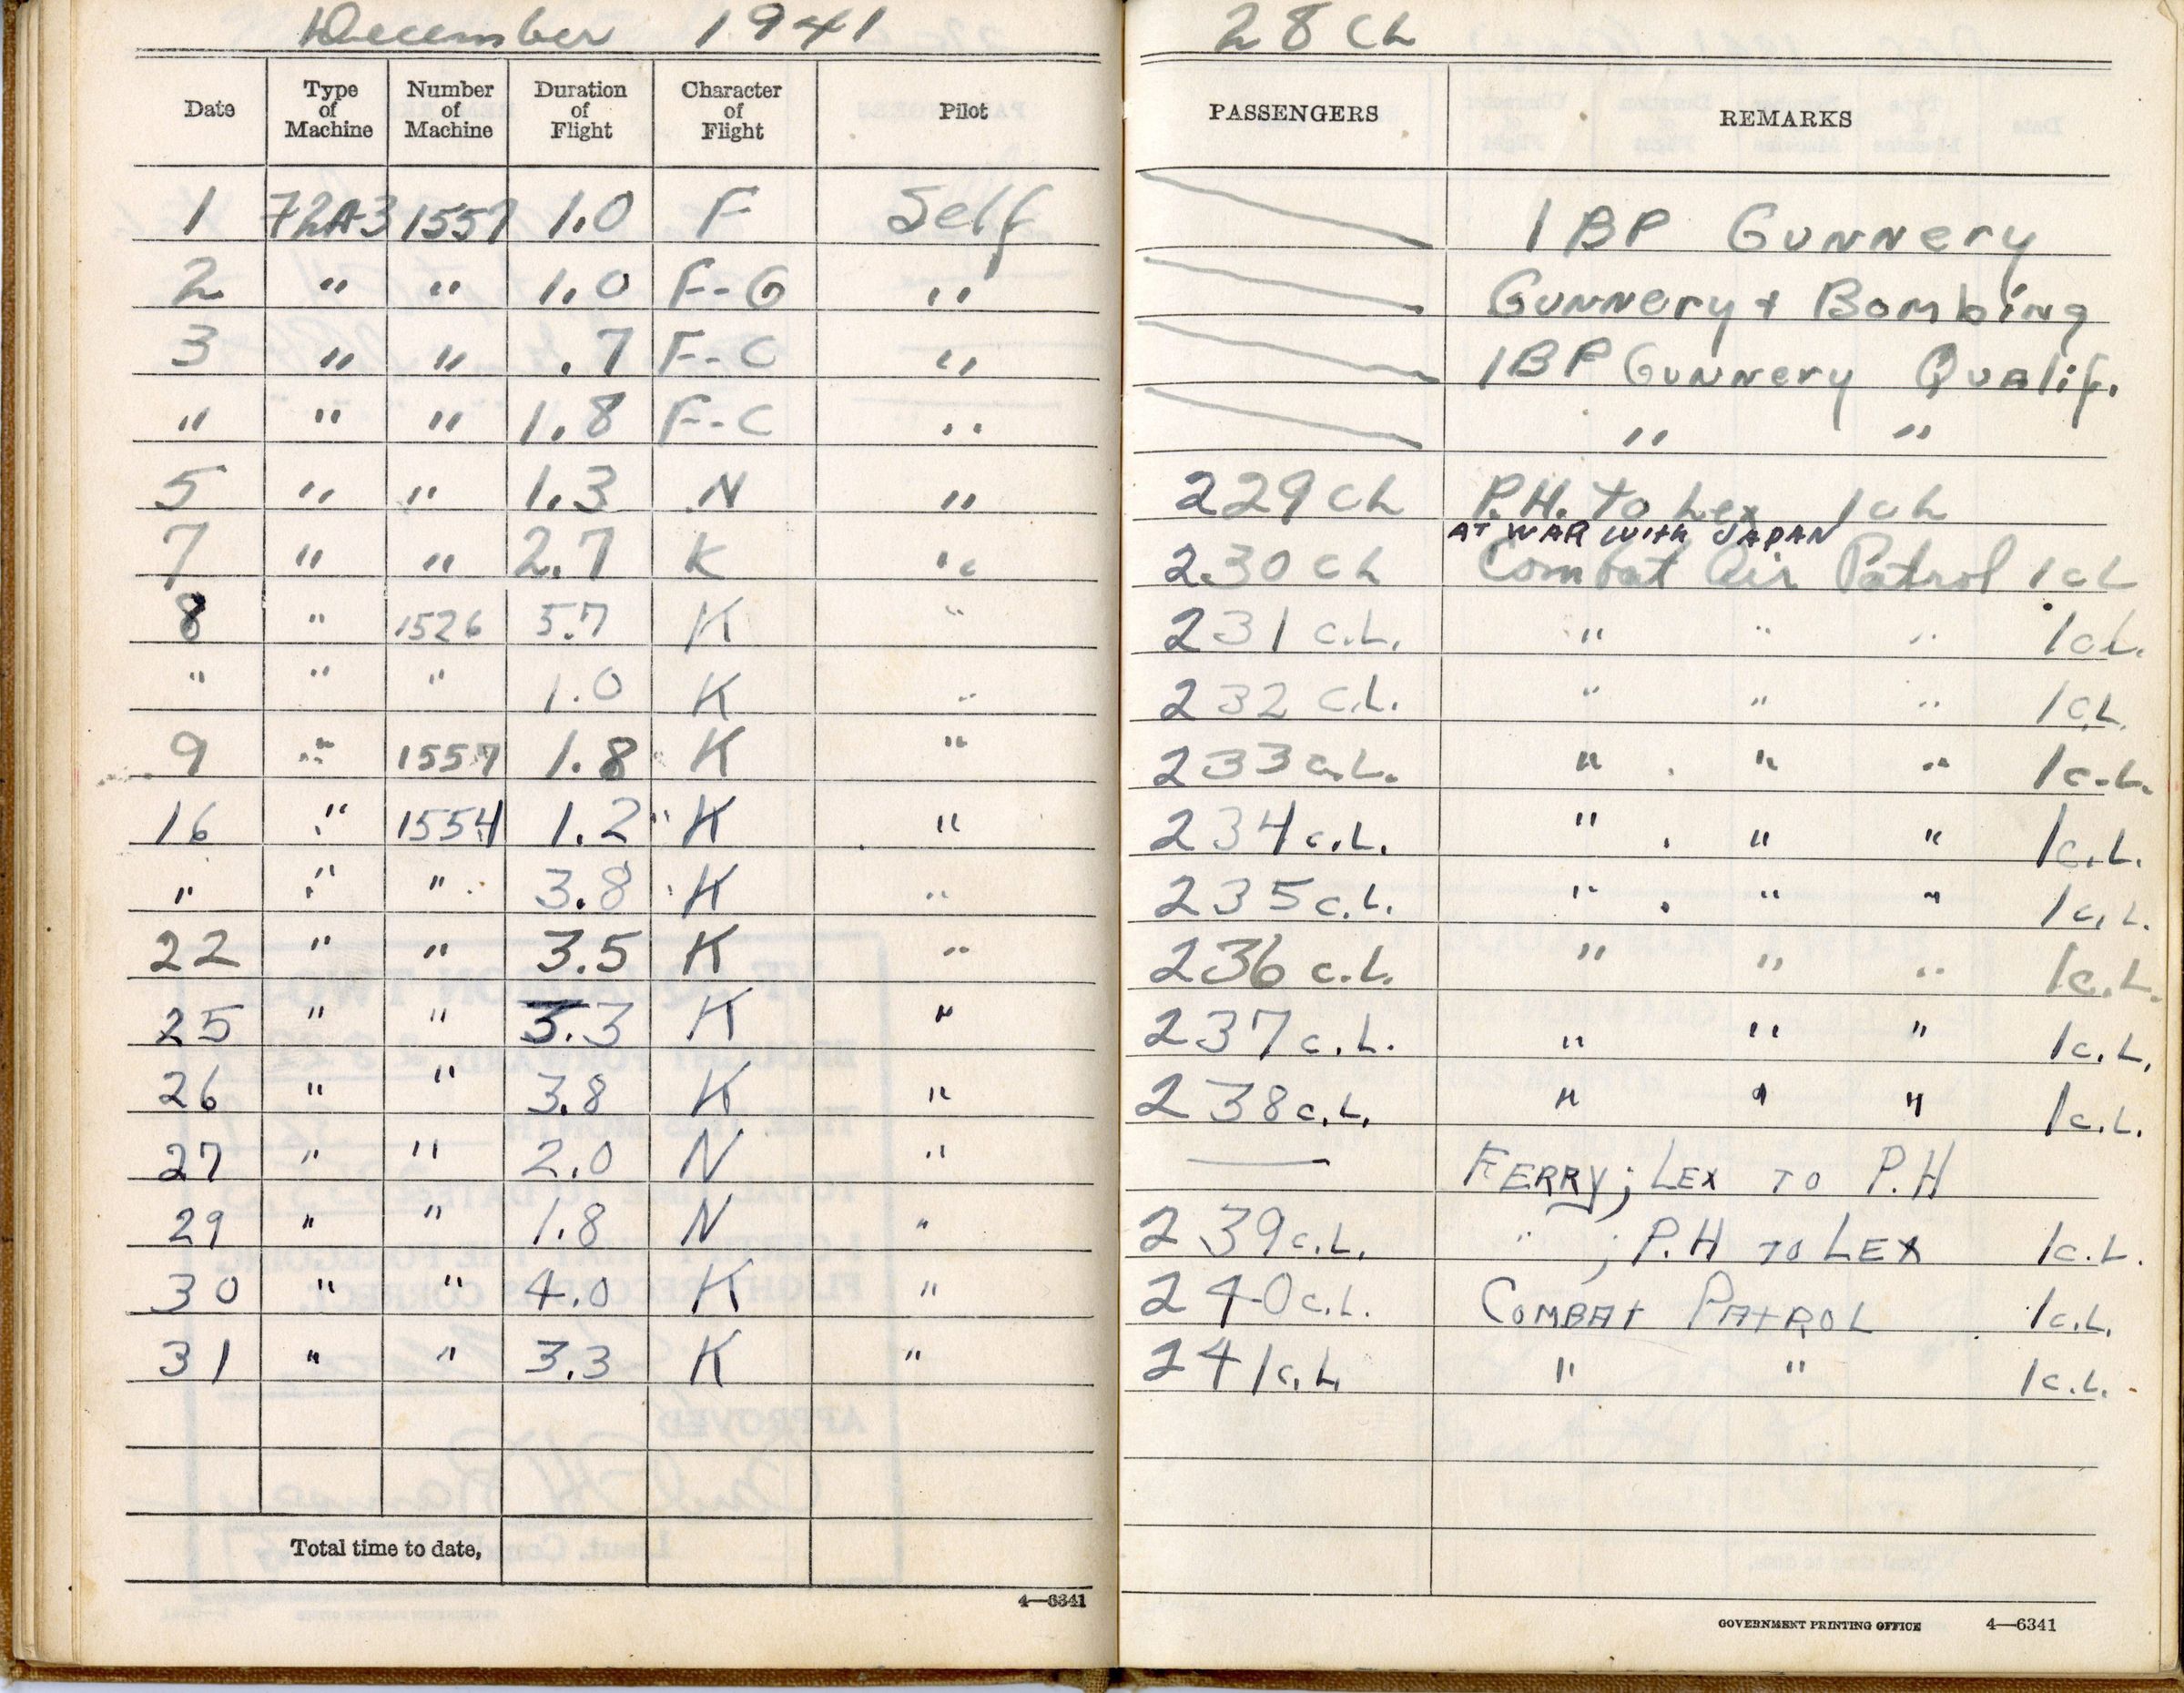 December 1941
Date Type of Machine Number of Machine Duration of Flight Character of Flight Pilot
1 72A3 1557 1.0 F Self
2 " " 1.0 F-G "
3 " " .7 F-C "
" " " 1.8 F-C "
5 " " 1.3 N "
7 " " 2.7 K "
8 " 1526 5.7 K "
" " " 1.0 K "
9 " 1557 1.8 K "
16 " 1554 1.2 K "
" " " 3.8 K "
22 " " 3.5 K "
25 " " 3.3 K "
26 " " 3.8 K "
27 " " 2.0 N "
29 " " 1.8 N "
30 " " 4.0 K "
31 " " 3.3 K "
Total time to date,
4—6341
28 CL
PASSENGERS REMARKS
1 BP Gunnery
Gunnery + Bombing
1BP Gunnery Qualif.
" "
229 CL P.H. to Lex 1 CL
AT WAR WITH JAPAN
230 CL Combat Air Patrol 1 CL
231 C.L. " " " 1 CL.
232 C.L. " " " 1 CL
233 C.L. " " " 1 C.L.
234 C.L. " " " 1 C.L.
235 C.L. " " " 1 C.L.
236 C.L. " " " 1 C.L.
237 C.L. " " " 1 C.L.
238 C.L. " " " 1 C.L.
— FERRY; LEX TO P.H
239 C.L. " ; P.H TO LEX 1 C.L.
240 C.L. COMBAT PATROL 1 C.L.
241 C.L. " " 1 C.L.
GOVERNMENT PRINTING OFFICE 4—6341